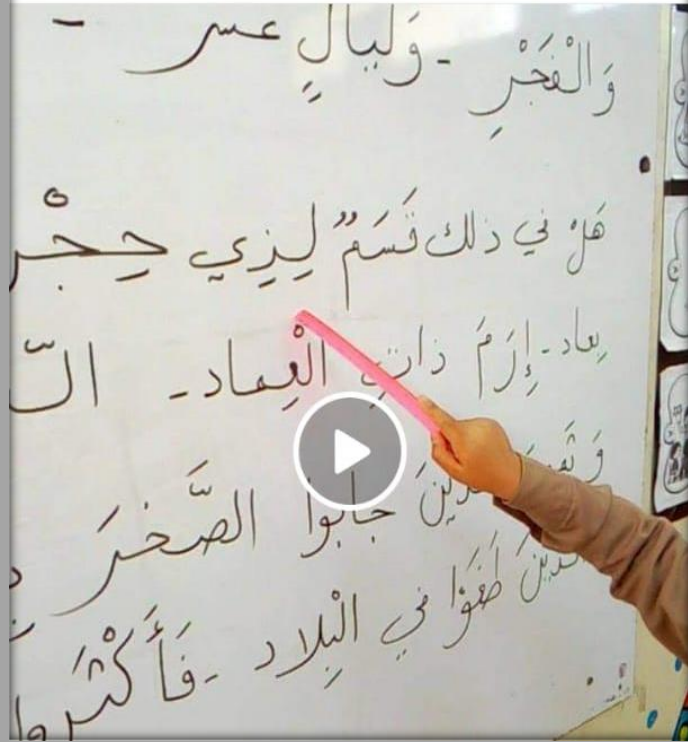 وَالْفَجْرِ - وَلَيَالٍ عسر -
هَلْ في ذلك قَسَمٌ لِذِي حِجْر
بِعاد - إِرَمَ ذاتِ الْعِماد - الّ
جابُوا الصَّخرَ
طَغَوْا في الْبِلاد - فَأَكْثَروا